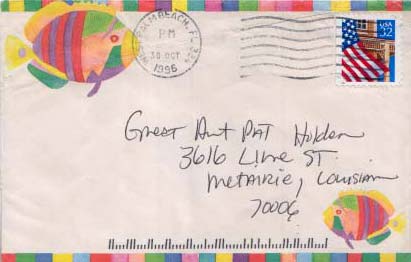 W PALM BEACH, FL 334
PM
30 OCT
1996
USA
32
Great Ant PAT Holden
3616 Lime ST.
Metairie, Louisian
70006